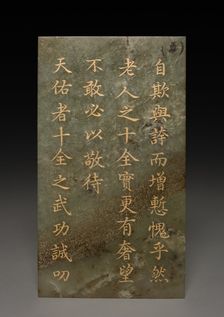 自欺與誇而增慙愧乎然
老人之十全實更有奢望
不敢必以敬待
天佑者十全之武功誠叨